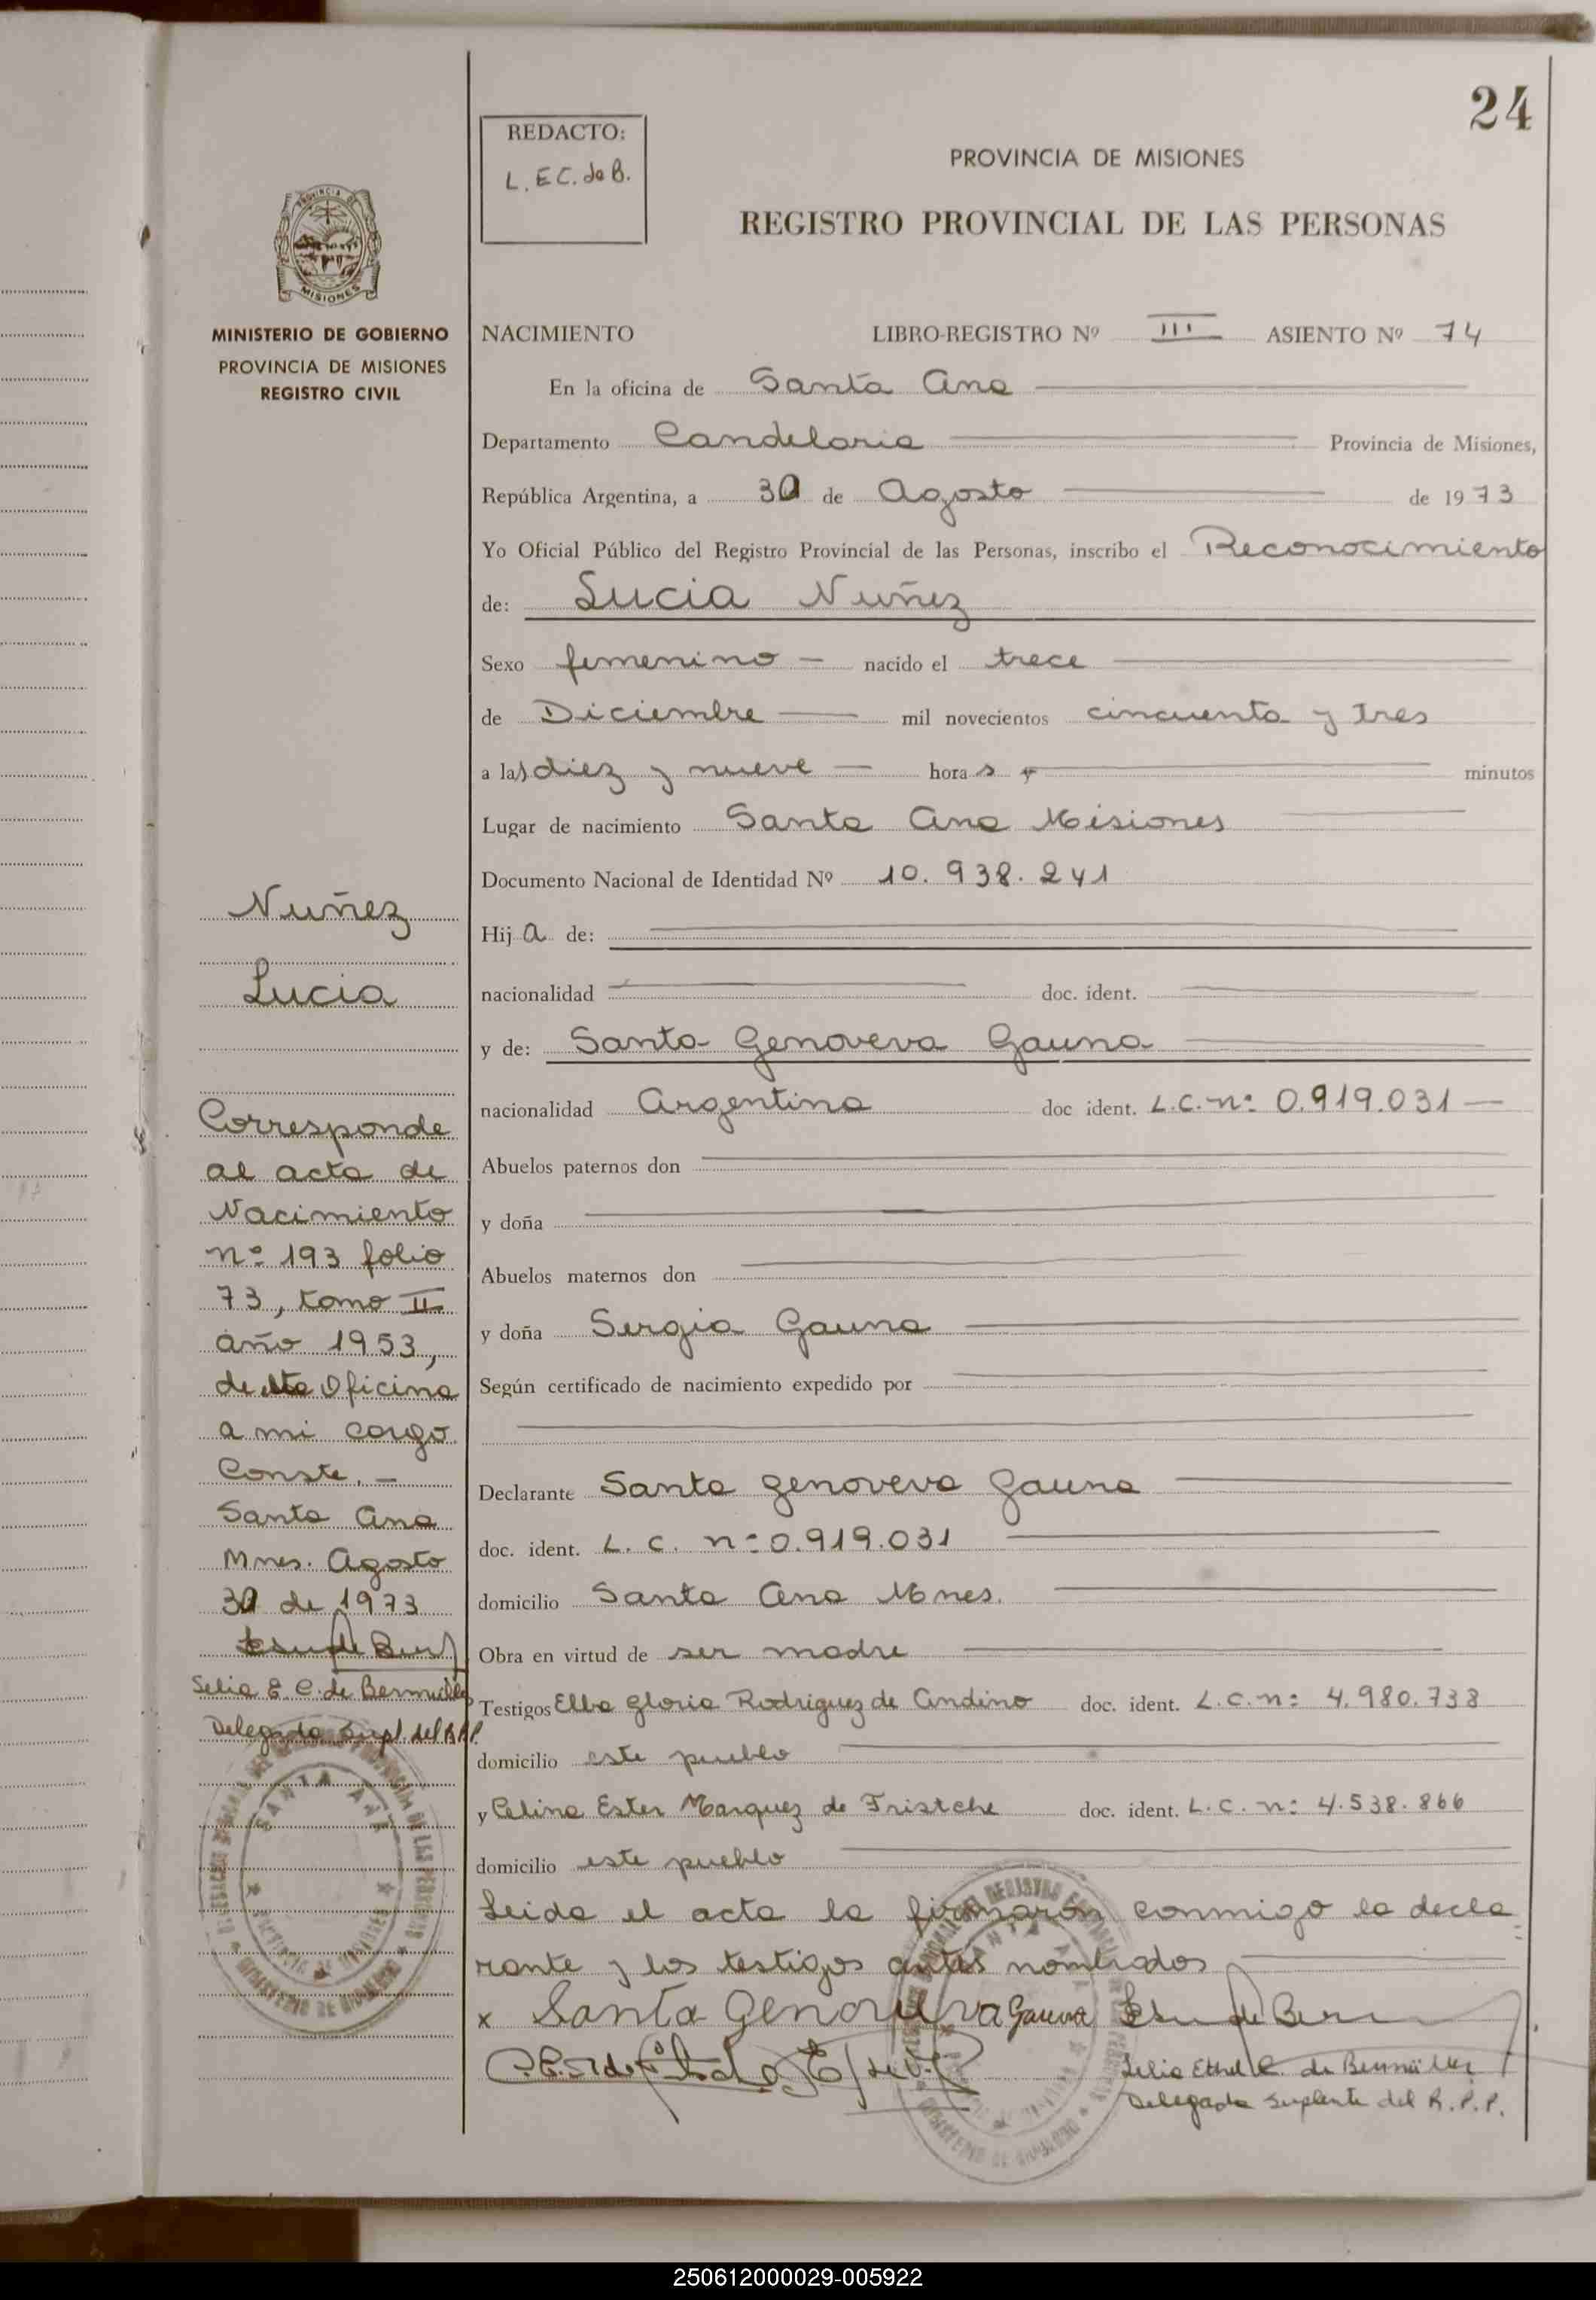 24
REDACTO:
L. E C. de B.
PROVINCIA DE MISIONES
REGISTRO PROVINCIAL DE LAS PERSONAS
MISIONES
MINISTERIO DE GOBIERNO
PROVINCIA DE MISIONES
REGISTRO CIVIL
NACIMIENTO LIBRO-REGISTRO Nº III ASIENTO Nº 74
En la oficina de Santa Ana
Departamento Candelaria Provincia de Misiones,
República Argentina, a 30 de Agosto de 1973
Yo Oficial Público del Registro Provincial de las Personas, inscribo el Reconocimiento
de: Lucia Nuñez
Sexo femenino - nacido el trece
de Diciembre mil novecientos cincuenta y tres
a las diez y nueve horas minutos
Lugar de nacimiento Santa Ana Misiones
Documento Nacional de Identidad Nº 10.938.241
Hija de:
nacionalidad doc. ident.
y de: Santa Genoveva Gauna
nacionalidad Argentina doc ident. L.C. nº 0.919.031 —
Abuelos paternos don
y doña
Abuelos maternos don
y doña Sergia Gauna
Según certificado de nacimiento expedido por
Declarante Santa Genoveva Gauna
doc. ident. L. C. nº 0.919.031
domicilio Santa Ana Mnes.
Obra en virtud de ser madre
Testigos Elba Gloria Rodriguez de Andino doc. ident. L.C. nº 4.980.733
domicilio este pueblo
y Celina Ester Marquez de Fristche doc. ident. L.C. nº 4.538.866
domicilio este pueblo
Leida el acta la firmaron conmigo la decla
rante y los testigos antes nombrados
x Santa Genoveva Gauna
Lelia Ethel C. de Bermüller
Delegada Suplente del R.P.P.
Nuñez
Lucia
Corresponde
al acta de
Nacimiento
nº 193 folio
73, tomo II
año 1953,
de esta Oficina
a mi cargo.
Conste. -
Santa Ana
Mnes. Agosto
30 de 1973
Lelia E. C. de Bermüller
Delegada Supl. del R.P.P.
SANTA ANA
250612000029-005922